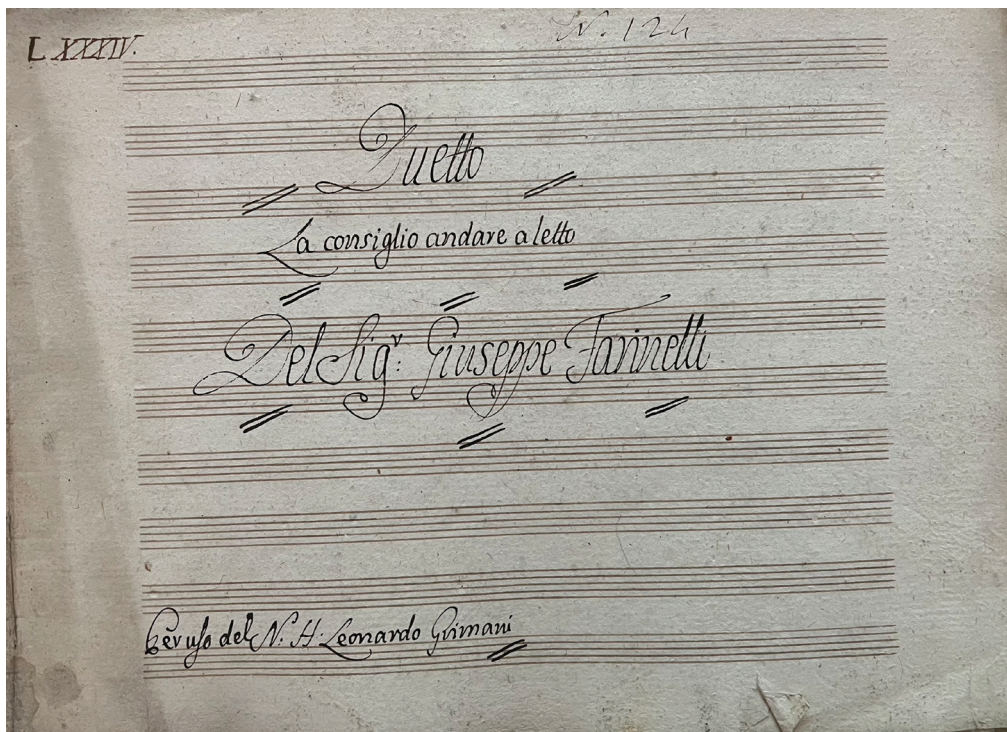 LXXXIV.
N. 124
Duetto
La consiglio andare a letto
Del Sigr. Giuseppe Farinelli
Per uso del N. H. Leonardo Grimani